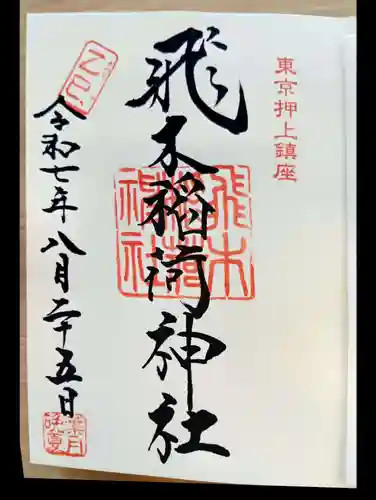 東京押上鎮座
飛木稲荷神社
飛木稲荷神社
令和七年八月二十五日
葉月
晩夏